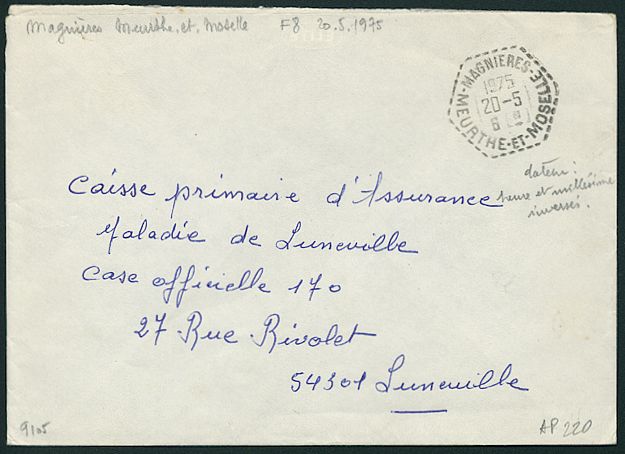 Magnières Meurthe.et.Moselle F8 20.5.1975
MAGNIERES-
1975
20-5
MEURTHE-ET-MOSELLE
dateur:
heure et millésime
inversés.
Caisse primaire d'Assurance
Maladie de Luneville
Case officielle 170
27 Rue Rivolet
54301 Luneville
9105
AP 220